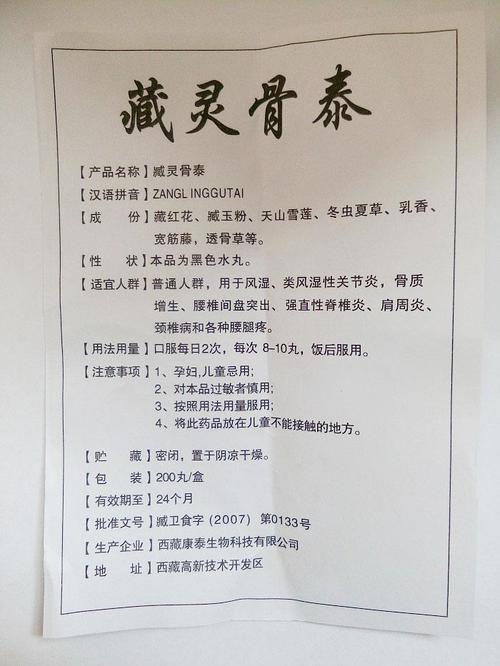 藏灵骨泰
【产品名称】臧灵骨泰
【汉语拼音】ZANGL INGGUTAI
【成　　份】藏红花、臧玉粉、天山雪莲、冬虫夏草、乳香、
宽筋藤，透骨草等。
【性　　状】本品为黑色水丸。
【适宜人群】普通人群，用于风湿、类风湿性关节炎，骨质
增生、腰椎间盘突出、强直性脊椎炎、肩周炎、
颈椎病和各种腰腿疼。
【用法用量】口服每日2次，每次 8-10丸，饭后服用。
【注意事项】1、孕妇,儿童忌用;
2、对本品过敏者慎用;
3、按照用法用量服用;
4、将此药品放在儿童不能接触的地方。
【贮　　藏】密闭，置于阴凉干燥。
【包　　装】200丸/盒
【有效期至】24个月
【批准文号】臧卫食字（2007）第0133号
【生产企业】西藏康泰生物科技有限公司
【地　　址】西藏高新技术开发区